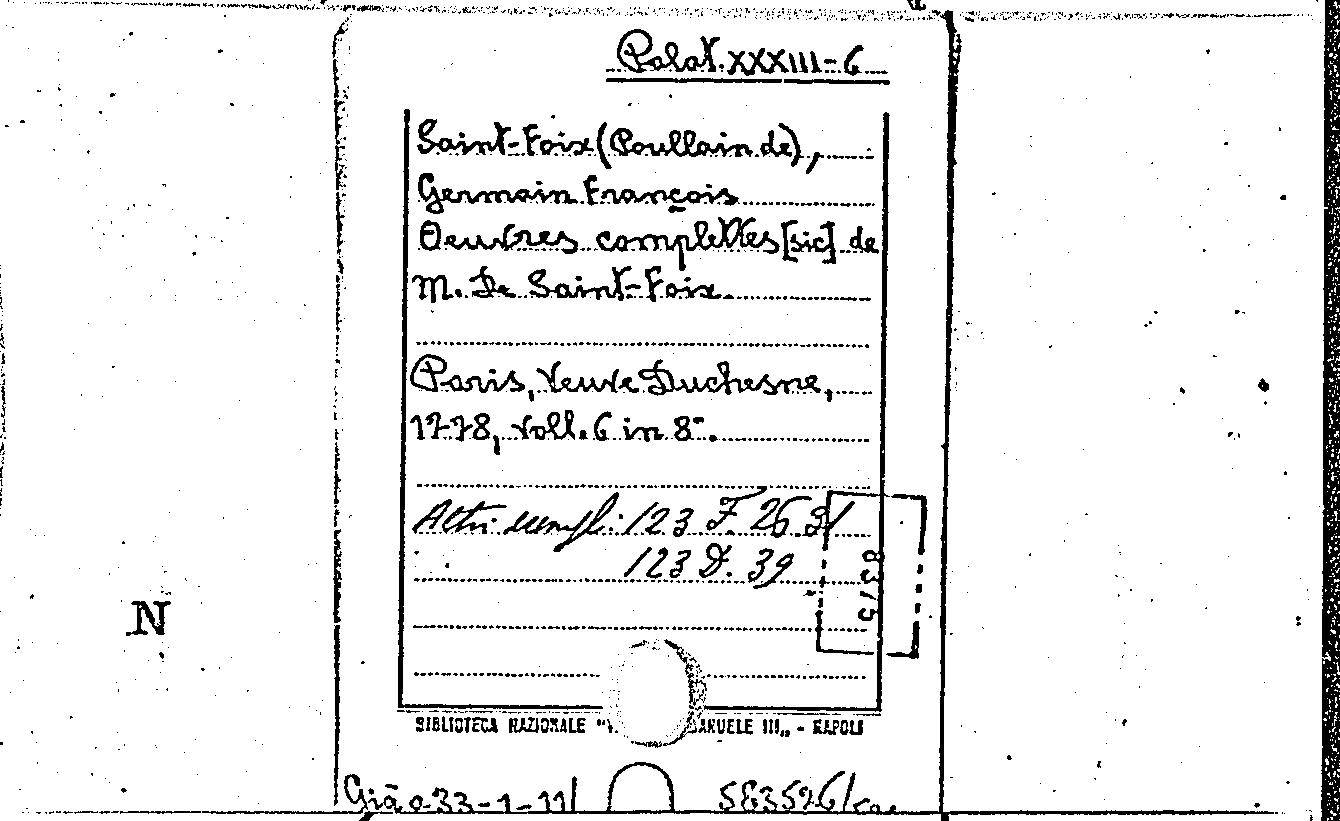 Palat. XXXIII-6
Saint-Foix (Poullain de),
Germain François
Oeuvres complettes [sic] de
M. De Saint-Foix.
Paris, Veuve Duchesne,
1778, voll. 6 in 8°.
Altri esempl: 123 F. 26 31
123 D. 39
8375
N
BIBLIOTECA NAZIONALE "V. ANUELE III„ - NAPOLI
Già 33-1-11/
583526/